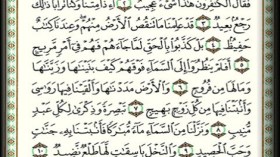 فَقَالَ ٱلْكَٰفِرُونَ هَٰذَا شَىْءٌ عَجِيبٌ ٢ أَءِذَا مِتْنَا وَكُنَّا تُرَابًا ذَٰلِكَ
رَجْعٌۢ بَعِيدٌ ٣ قَدْ عَلِمْنَا مَا تَنقُصُ ٱلْأَرْضُ مِنْهُمْ وَعِندَنَا كِتَٰبٌ
حَفِيظٌۢ ٤ بَلْ كَذَّبُوا۟ بِٱلْحَقِّ لَمَّا جَآءَهُمْ فَهُمْ فِىٓ أَمْرٍ مَّرِيجٍ
٥ أَفَلَمْ يَنظُرُوٓا۟ إِلَى ٱلسَّمَآءِ فَوْقَهُمْ كَيْفَ بَنَيْنَٰهَا وَزَيَّنَّٰهَا
وَمَا لَهَا مِن فُرُوجٍ ٦ وَٱلْأَرْضَ مَدَدْنَٰهَا وَأَلْقَيْنَا فِيهَا رَوَٰسِىَ
وَأَنۢبَتْنَا فِيهَا مِن كُلِّ زَوْجٍۭ بَهِيجٍ ٧ تَبْصِرَةً وَذِكْرَىٰ لِكُلِّ عَبْدٍ
مُّنِيبٍ ٨ وَنَزَّلْنَا مِنَ ٱلسَّمَآءِ مَآءً مُّبَٰرَكًا فَأَنۢبَتْنَا بِهِۦ جَنَّٰتٍ
وَحَبَّ ٱلْحَصِيدِ ٩ وَٱلنَّخْلَ بَاسِقَٰتٍ لَّهَا طَلْعٌ نَّضِيدٌ ١٠